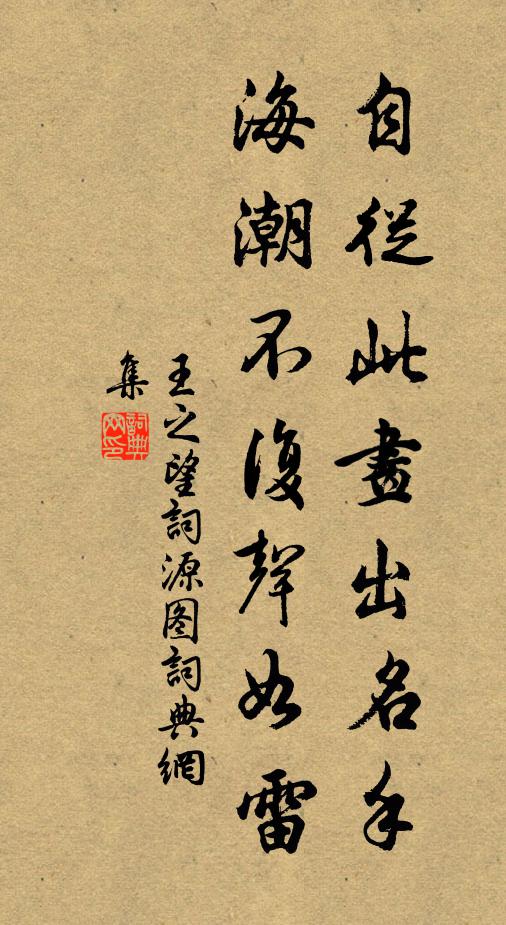 自從此畫出名手
海潮不復聲如雷
王之望詞源图詞典網
集
詞典網印